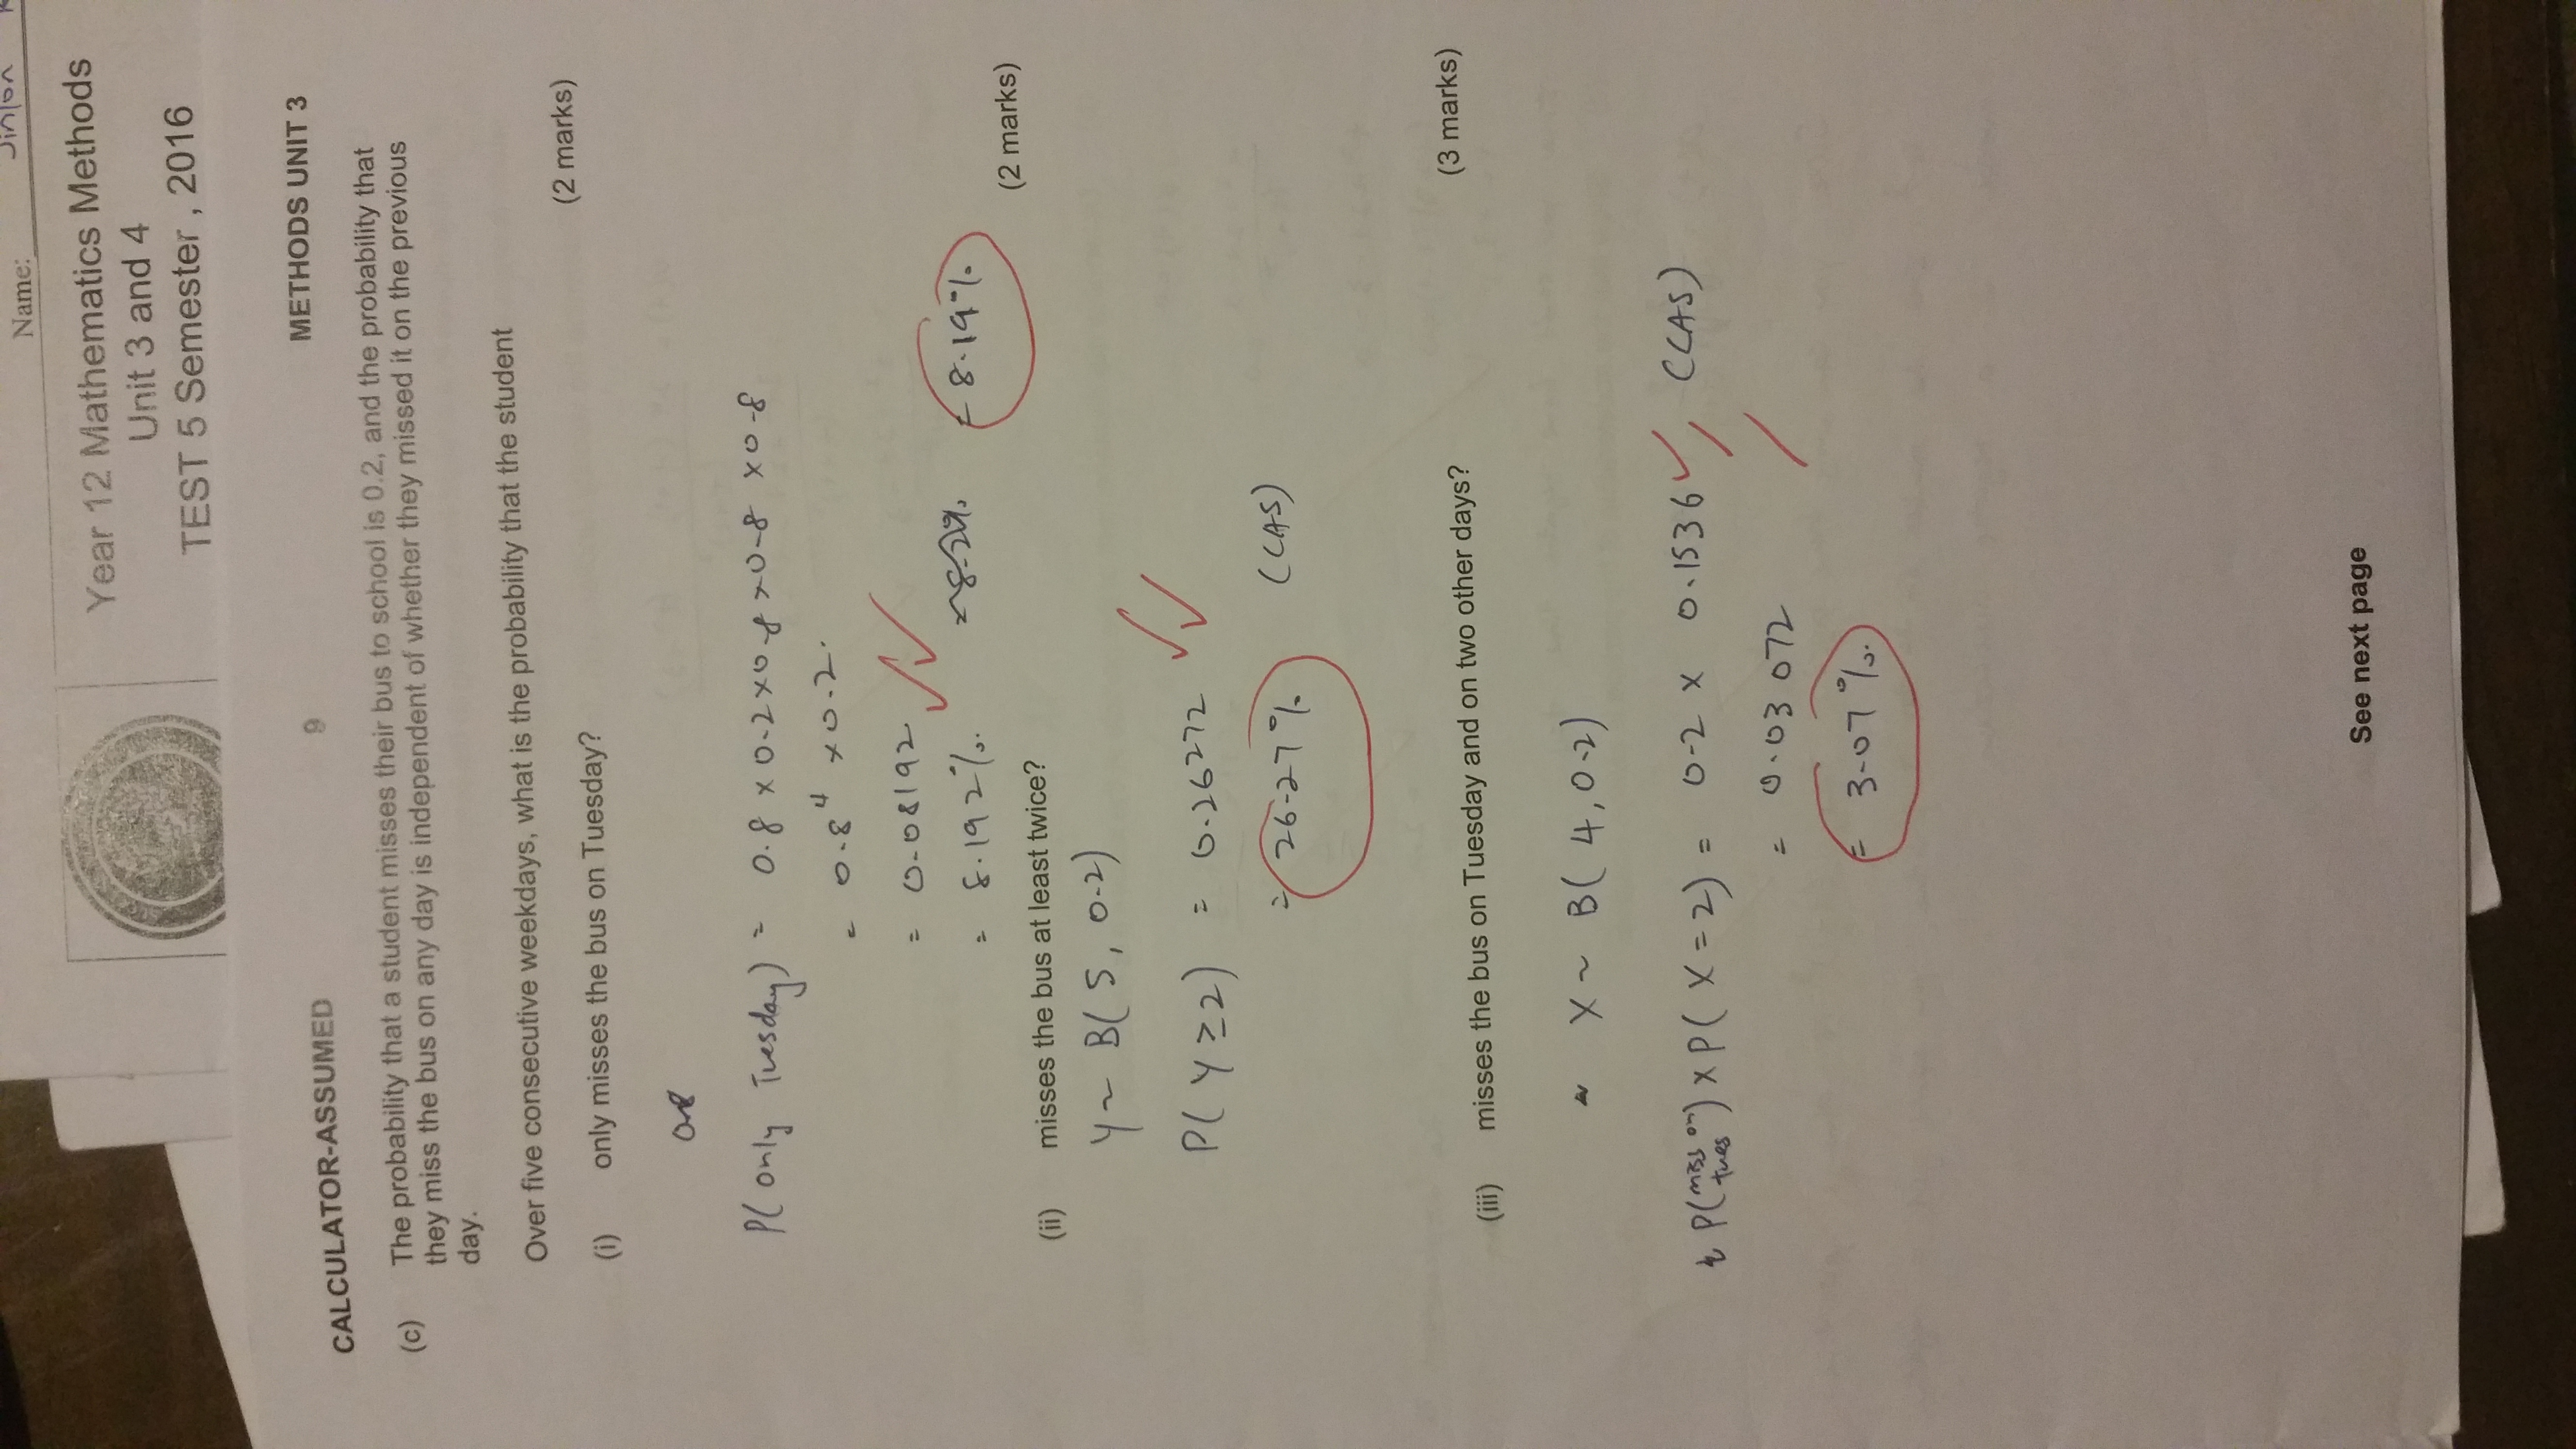 Name: Jinlon
Year 12 Mathematics Methods
Unit 3 and 4
TEST 5 Semester , 2016
CALCULATOR-ASSUMED 9 METHODS UNIT 3
(c) The probability that a student misses their bus to school is 0.2, and the probability that
they miss the bus on any day is independent of whether they missed it on the previous
day.
Over five consecutive weekdays, what is the probability that the student
(2 marks)
(i) only misses the bus on Tuesday?
P( only Tuesday) = 0.8 × 0.2 × 0.8 × 0.8 × 0.8
= 0.8⁴ × 0.2.
= 0.08192
= 8.192%. = 8.19%
(2 marks)
(ii) misses the bus at least twice?
Y ~ B( 5, 0.2)
P( Y ≥ 2) = 0.26272
= 26.27% (CAS)
(3 marks)
(iii) misses the bus on Tuesday and on two other days?
X ~ B( 4, 0.2)
P( miss on tues ) × P( X = 2) = 0.2 × 0.1536 (CAS)
= 0.03072
= 3.07%.
See next page